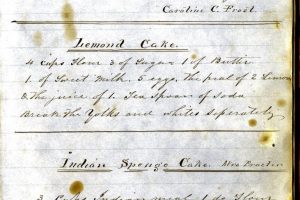 Caroline C. Frost.
Lemond Cake.
4 cups flour 3 of Sugar 1 of Butter
1 of Sweet Milk. 5 eggs, the peal of 2 Limons
& the juice of 1. Tea Spoon of Soda
Break the Yolks and whites Seperately
Indian Sponge Cake. Mrs Procter
3 Cups Indian meal 1 do flour